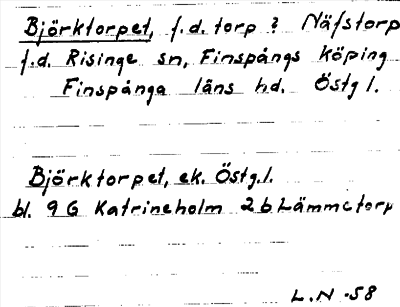 Björktorpet, f.d. torp ? Näfstorp
f.d. Risinge sn, Finspångs köping
Finspånga läns hd. Östg l.
Björktorpet, ek. Östg.l.
bl. 9 G Katrineholm 2 b Lämmetorp
L.N -58